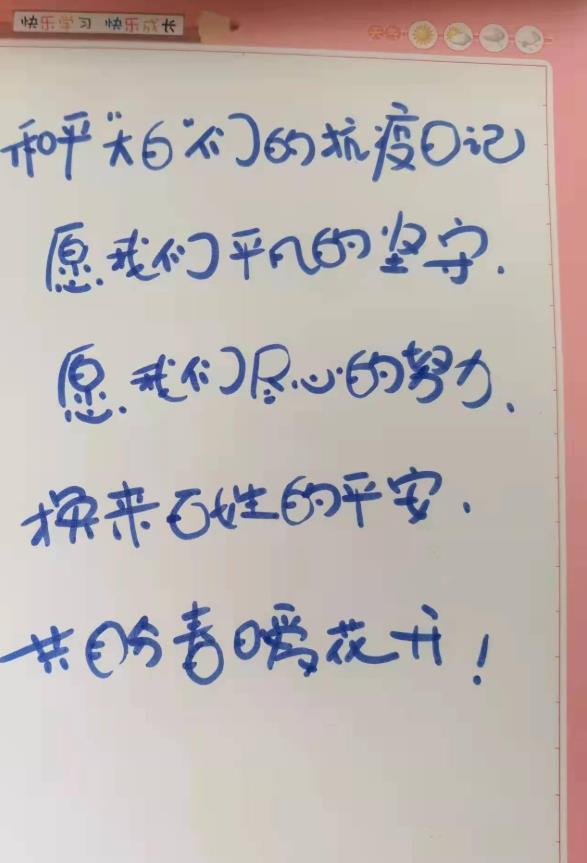 快乐学习 快乐成长
和平“大白”们的抗疫日记
愿我们平凡的坚守.
愿我们尽心的努力、
换来百姓的平安.
共盼春暖花开!